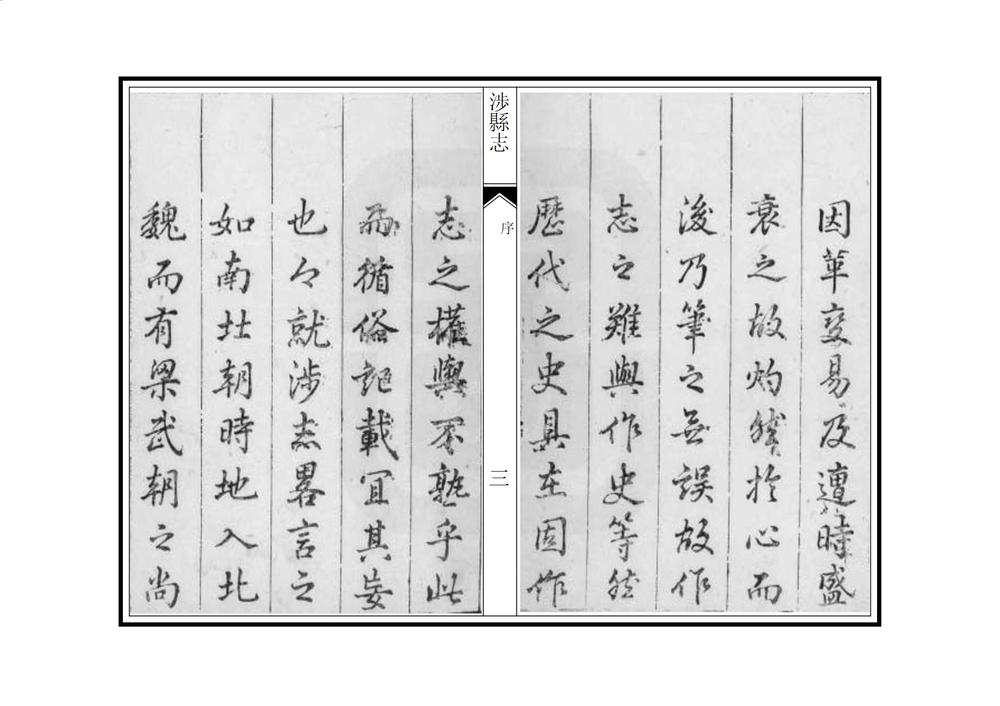 因革變易及遭時盛
衰之故灼然於心而
後乃筆之無誤故作
志之難與作史等然
歷代之史具在固作
涉縣志
序
三
志之權輿不熟乎此
而循俗載宜其妄
也今就涉志畧言之
如南北朝時地入北
魏而有梁武朝之尚